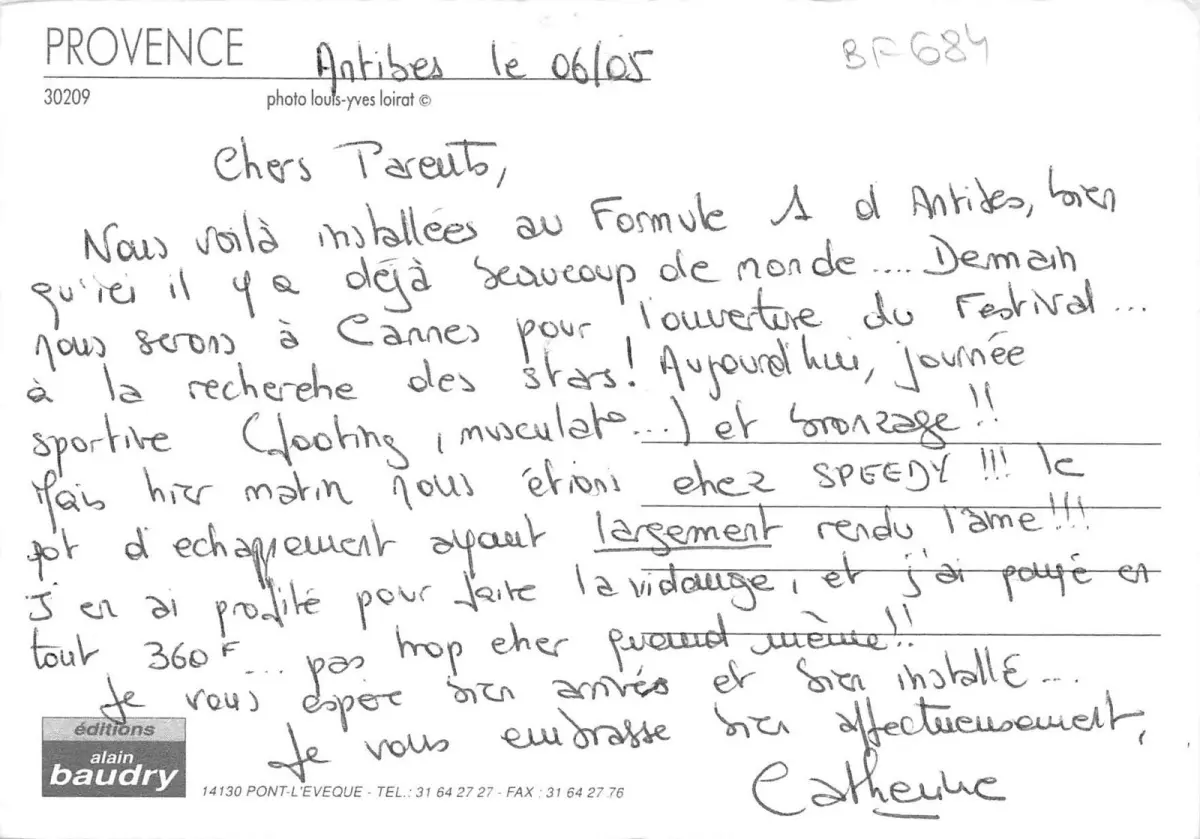 PROVENCE
Antibes le 06/05
BF684
30209
photo louis-yves loirat ©
Chers Parents,
Nous voilà installées au Formule 1 d Antibes, bien
qu'ici il y a déjà beaucoup de monde .... Demain
nous serons à Cannes pour l'ouverture du Festival ...
à la recherche des stars! Aujourd'hui, journée
sportive (footing, musculat° ...) et bronzage !!
Mais hier matin nous étions chez SPEEDY !!! le
pot d'echappement ayant largement rendu l'ame !!!
J'en ai profité pour faire la vidange, et j'ai payé en
tout 360F ... pas trop cher quand même !!
Je vous espère bien arrivés et bien installé ...
Je vous embrasse bien affectueusement,
Catherine
éditions
alain
baudry
14130 PONT-L'EVEQUE - TEL.: 31 64 27 27 - FAX : 31 64 27 76